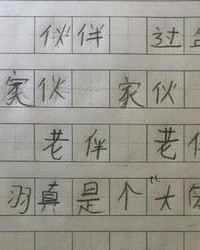 伙伴 过
家伙 家伙
老伴 老
羽真是个“大